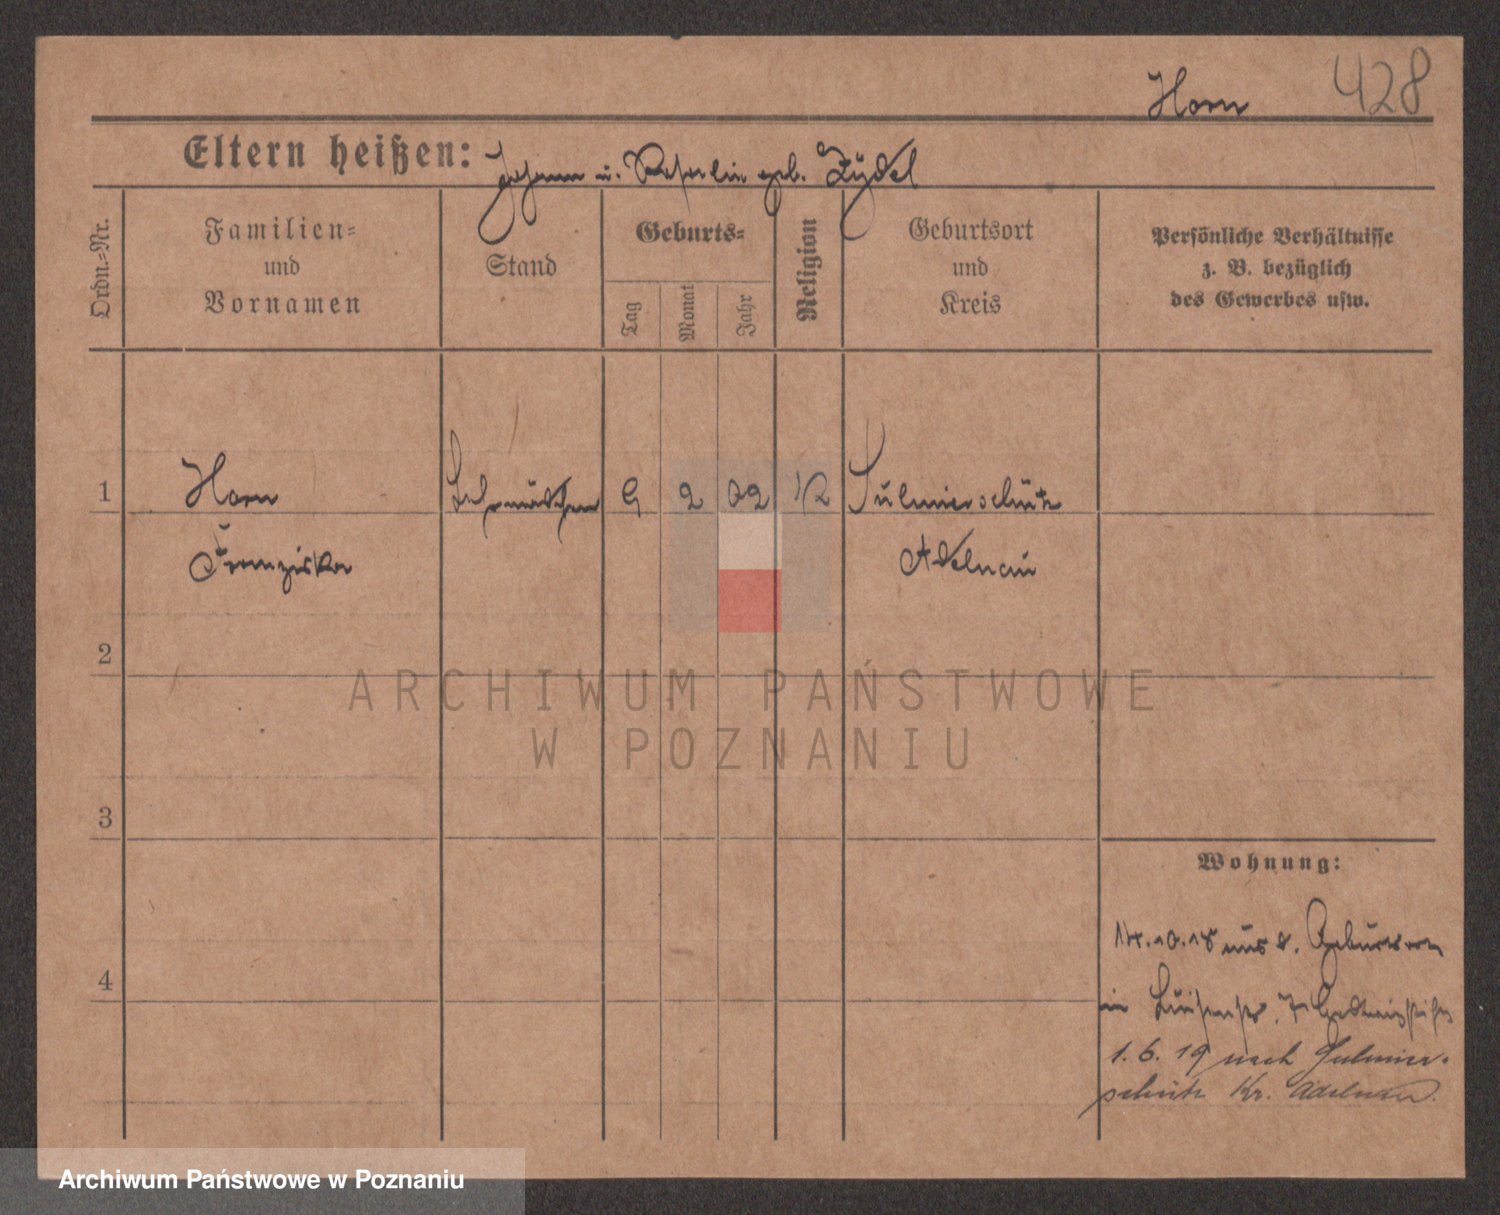 428
Horn
Eltern heißen: Johann u. geb. Zydel
Ordn.=Nr.
Familien=
und
Vornamen
Stand
Geburts=
Tag
Monat
Jahr
Religion
Geburtsort
und
Kreis
Persönliche Verhältnisse
z. B. bezüglich
des Gewerbes usw.
1
Horn
Franziska
Lehrmädchen
9
2
02
Sulmierschütz
Adelnau
2
3
4
Wohnung:
14.10.18 aus d. Geburtsort
in Luisenstr. 7
1.6.19 nach Sulmier-
schütz Kr. Adelnau.
ARCHIWUM PAŃSTWOWE
W POZNANIU
Archiwum Państwowe w Poznaniu